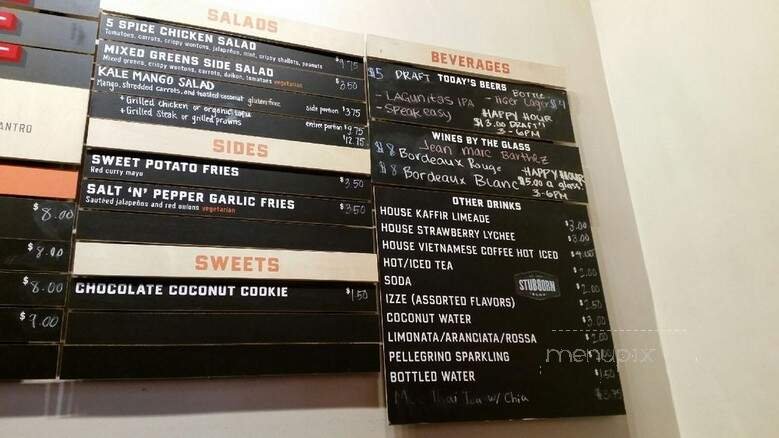 ANTRO
$8.00
$8.00
$8.00
$9.00
SALADS
5 SPICE CHICKEN SALAD
Tomatoes, carrots, crispy wontons, jalapeños, mint, crispy shallots, peanuts $9.75
MIXED GREENS SIDE SALAD
Mixed greens, crispy wontons, carrots, daikon, tomatoes vegetarian $3.50
KALE MANGO SALAD
Mango, shredded carrots, and toasted coconut gluten free side portion $3.75
+ Grilled chicken or organic tofu entree portion $9.75
+ Grilled steak or grilled prawns $12.75
SIDES
SWEET POTATO FRIES
Red curry mayo $3.50
SALT 'N' PEPPER GARLIC FRIES
Sautéed jalapeños and red onions vegetarian $3.50
SWEETS
CHOCOLATE COCONUT COOKIE $1.50
BEVERAGES
TODAY'S BEERS
$5 DRAFT BOTTLE
- LAGUNITAS IPA - Tiger Lager $4
- Speakeasy HAPPY HOUR
$3.00 DRAFT!!
3-6PM
WINES BY THE GLASS
Jean Marc Barthez
$8 Bordeaux Rouge HAPPY HOUR
$8 Bordeaux Blanc $5.00 a glass!
3-6PM
OTHER DRINKS
HOUSE KAFFIR LIMEADE $3.00
HOUSE STRAWBERRY LYCHEE $3.00
HOUSE VIETNAMESE COFFEE HOT ICED $4.00
HOT/ICED TEA $2.00
SODA STUBBORN SODA $2.00
IZZE (ASSORTED FLAVORS) $2.50
COCONUT WATER $3.00
LIMONATA/ARANCIATA/ROSSA $2.00
PELLEGRINO SPARKLING
BOTTLED WATER $1.50
Thai Tea w/ Chia $3.75
menupix